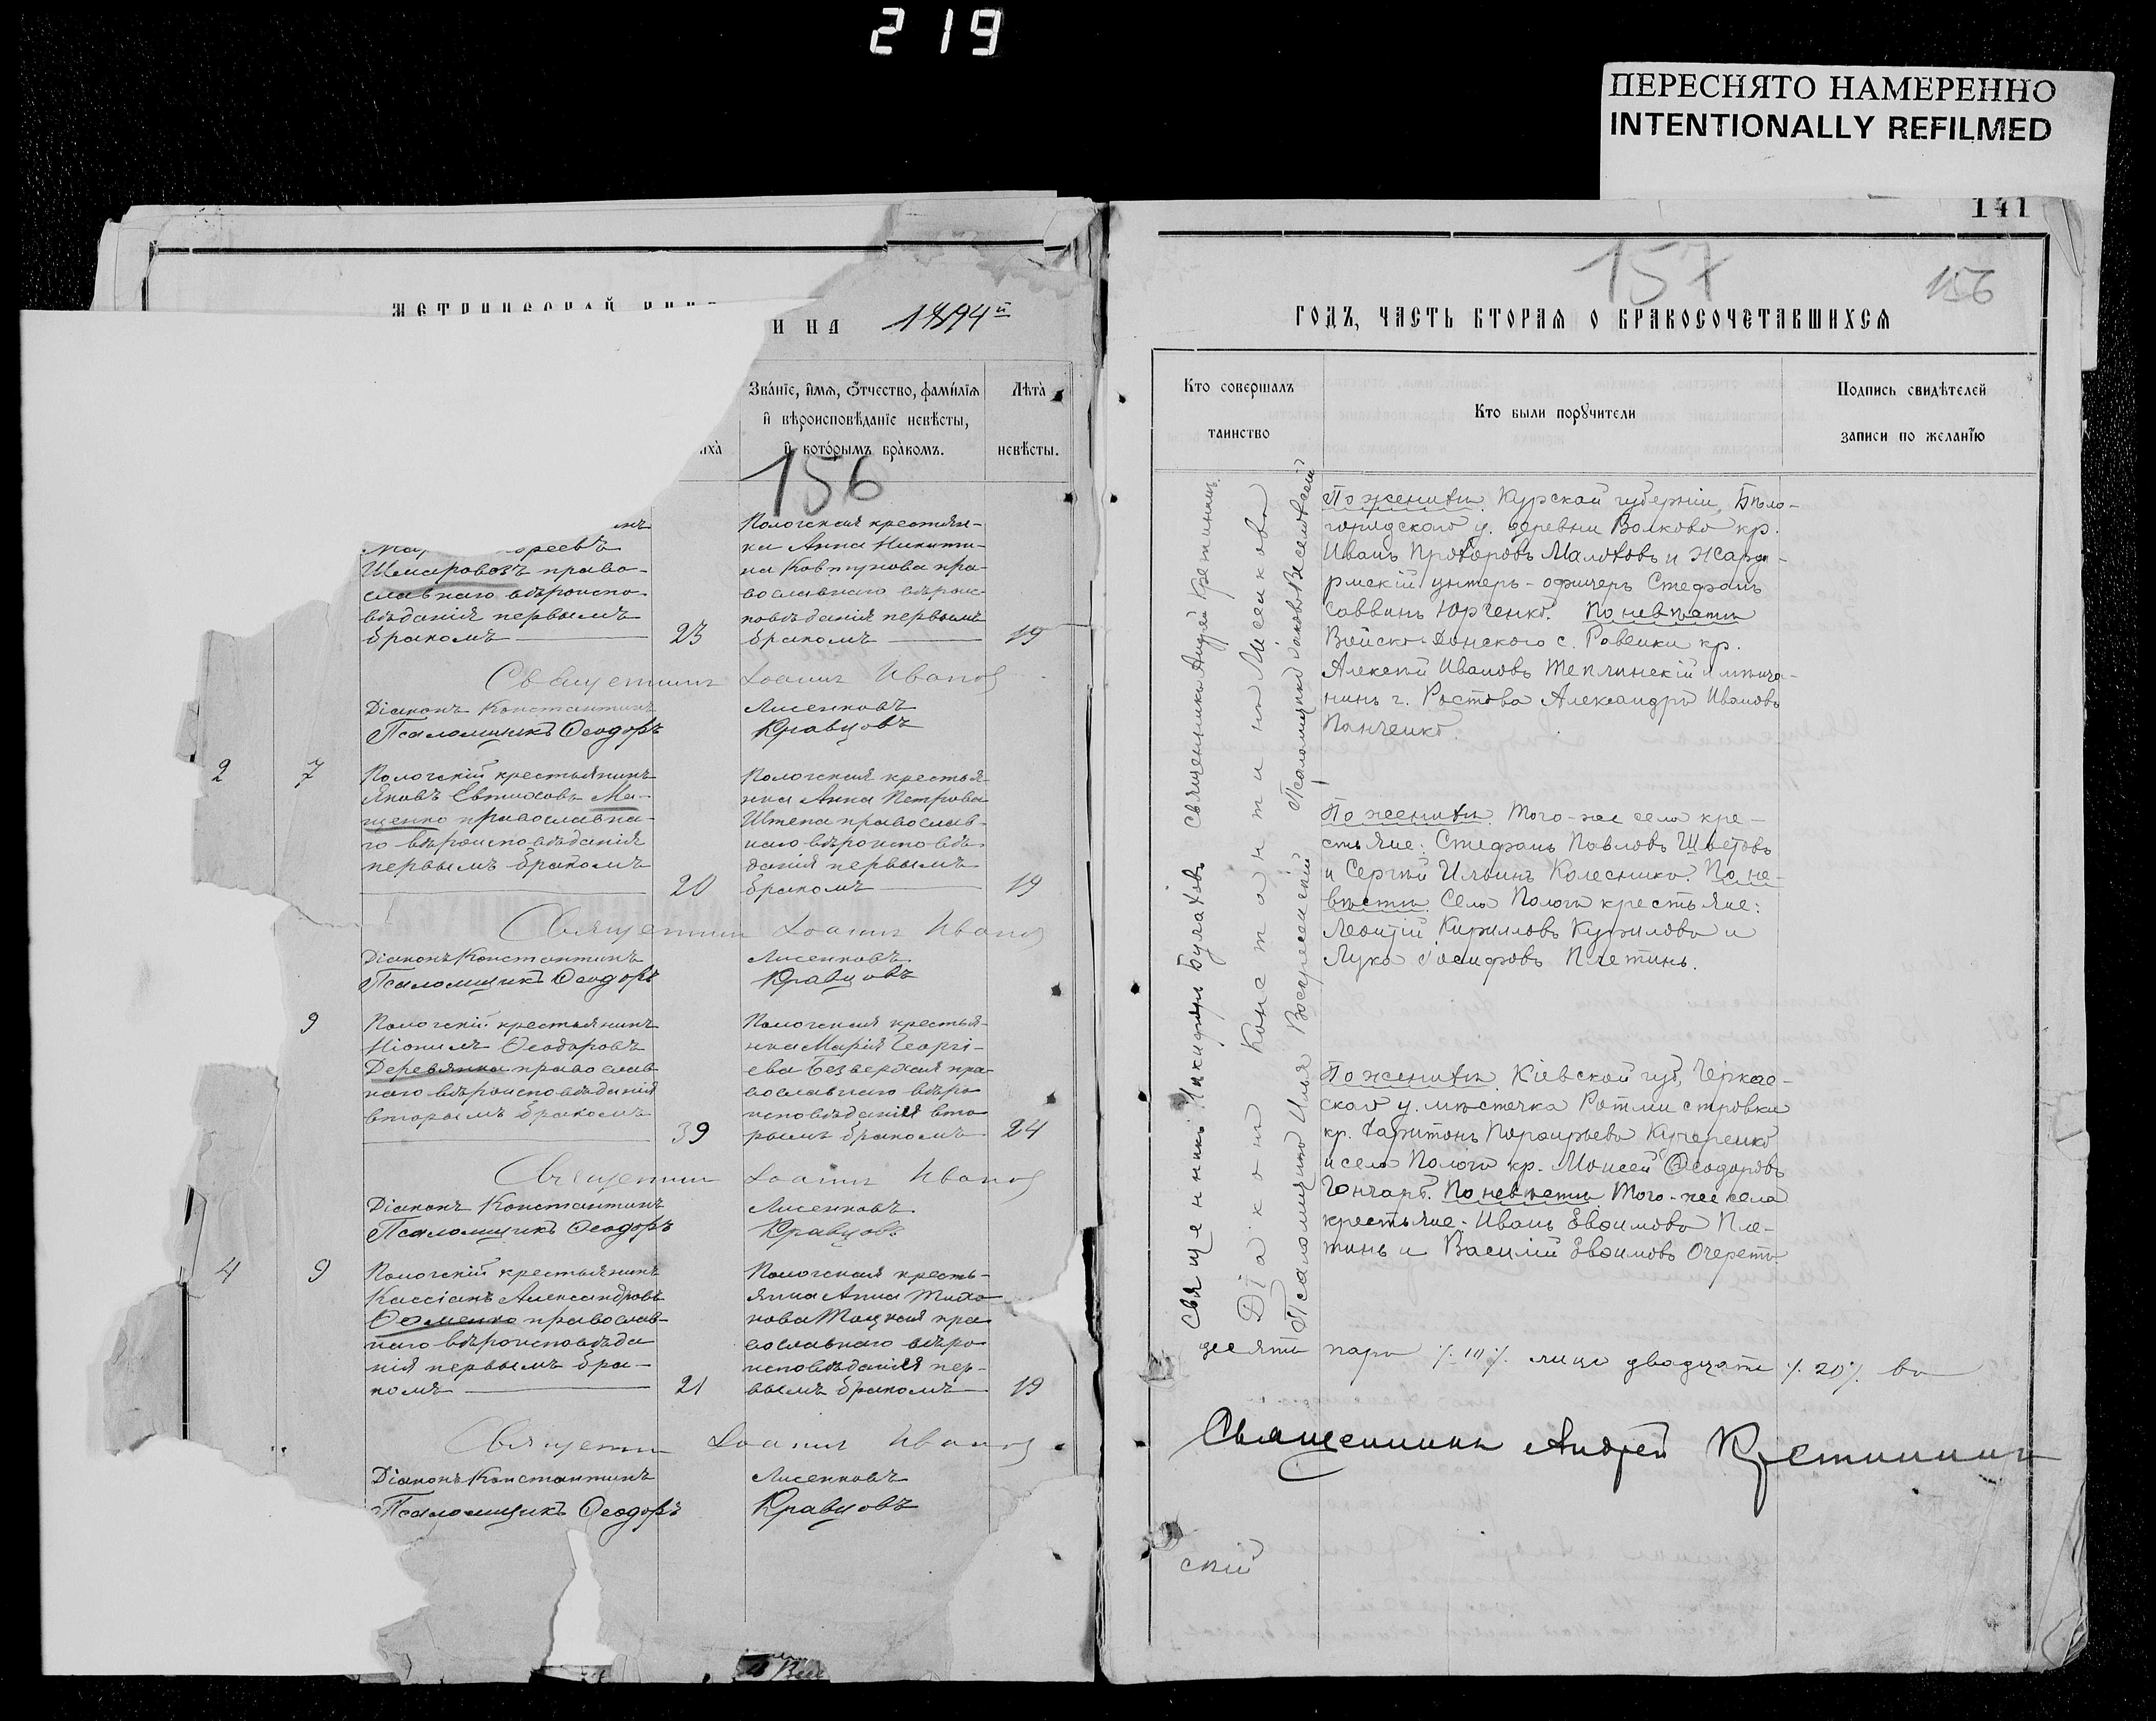 219
ПЕРЕСНЯТО НАМЕРЕННО
INTENTIONALLY REFILMED
И НА 1894й
Званіе, имя, отчество, фамилія
и вѣроисповѣданіе невѣсты,
и которымъ бракомъ.
Лѣта
невѣсты.
156
Шеларовозъ право-
славнаго вѣроиспо-
вѣданія первымъ
бракомъ 23
Пологская крестьян-
ка Анна Никити-
на Ковтунова пра-
вославнаго вѣроис-
повѣданія первымъ
бракомъ 19
Священникъ Іоаннъ Ивановъ
Діаконъ Константинъ Лисенковъ
Псаломщикъ Ѳеодоръ Кравцовъ
2 7 Пологскій крестьянинъ
Яковъ Евтиховъ Ма-
щенко православна-
го вѣроисповѣданія
первымъ бракомъ
20
Пологская крестья-
нка Анна Петрова
Штепа православ-
наго вѣроисповѣ-
данія первымъ
бракомъ 19
Священникъ Іоаннъ Ивановъ
Діаконъ Константинъ Лисенковъ
Псаломщикъ Ѳеодоръ Кравцовъ
9 Пологскій крестьянинъ
Ѳеодоровъ
Деревянка православ-
наго вѣроисповѣданія
вторымъ бракомъ
39
Пологская крестья-
нка Марія Георгі-
ева Безверхая пра-
вославнаго вѣро-
исповѣданія вто-
рымъ бракомъ 24
Священникъ Іоаннъ Ивановъ
Діаконъ Константинъ Лисенковъ
Псаломщикъ Ѳеодоръ Кравцовъ
4 9 Пологскій крестьянинъ
Кассіанъ Александровъ
православ-
наго вѣроисповѣда
нія первымъ бра-
комъ 21
Пологская кресть-
янка Анна Тихо-
нова Тоцкая пра
вославнаго вѣро
исповѣданія пер-
вымъ бракомъ 19
Священникъ Іоаннъ Ивановъ
Діаконъ Константинъ Лисенковъ
Псаломщикъ Ѳеодоръ Кравцовъ
141
157
156
ГОДЪ, ЧАСТЬ ВТОРАЯ О БРАКОСОЧЕТАВШИХСЯ
Кто совершалъ
таинство
Кто были поручители
Подпись свидѣтелей
записи по желанію
Священникъ Никифоръ Булатовъ Священникъ Андрей Кретининъ
Діаконъ Константинъ Лисенковъ
Псаломщикъ Илья Воскресенскій Псаломщикъ Яковъ Веселовскій
По женихѣ: Курской губерніи, Бѣло-
городскаго у. деревни Волково кр.
Иванъ Прохоровъ Малаховъ и жанда-
рмскій унтеръ-офицеръ Стефанъ
Саввинъ Юрченко. По невѣстѣ
Войско-Донского с. Ровеньки кр.
Алексѣй Ивановъ Теплинскій и мѣща-
нинъ г. Ростова Александръ Ивановъ
Панченко.
По женихѣ: Того-же села кре-
стьяне: Стефанъ Павловъ Швѣтовъ
и Сергѣй Ильинъ Колесникъ. По не-
вѣстѣ: Села Пологи крестьяне:
Леонтій Кирилловъ Курилова и
Лука Іосифовъ Плетинь.
По женихѣ: Кіевской губ, Черкас-
скаго у. мѣстечка Ротмистровки
кр. Харитонъ Порфирьевъ Кучеренко
и села Пологи кр. Моисей Ѳеодоровъ
Гончаръ. По невѣстѣ: Того-же села
крестьяне: Иванъ Евфимовъ Пле-
тинь и Василій Евфимовъ Очереть
десять паръ ·/. 10 ·/. лицъ двадцать ·/. 20 ·/. во
Священникъ Андрей Кретининъ
скій